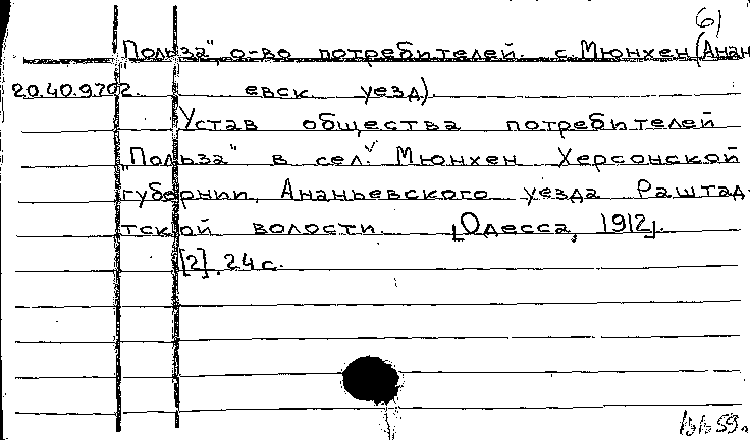 6)
"Польза", о-во потребителей. с. Мюнхен (Анан
20.40.9702. евск. уезд).
Устав общества потребителей
"Польза" в сел. Мюнхен Херсонской
губернии, Ананьевского уезда Раштад-
тской волости. [Одесса, 1912].
[2], 24 с.